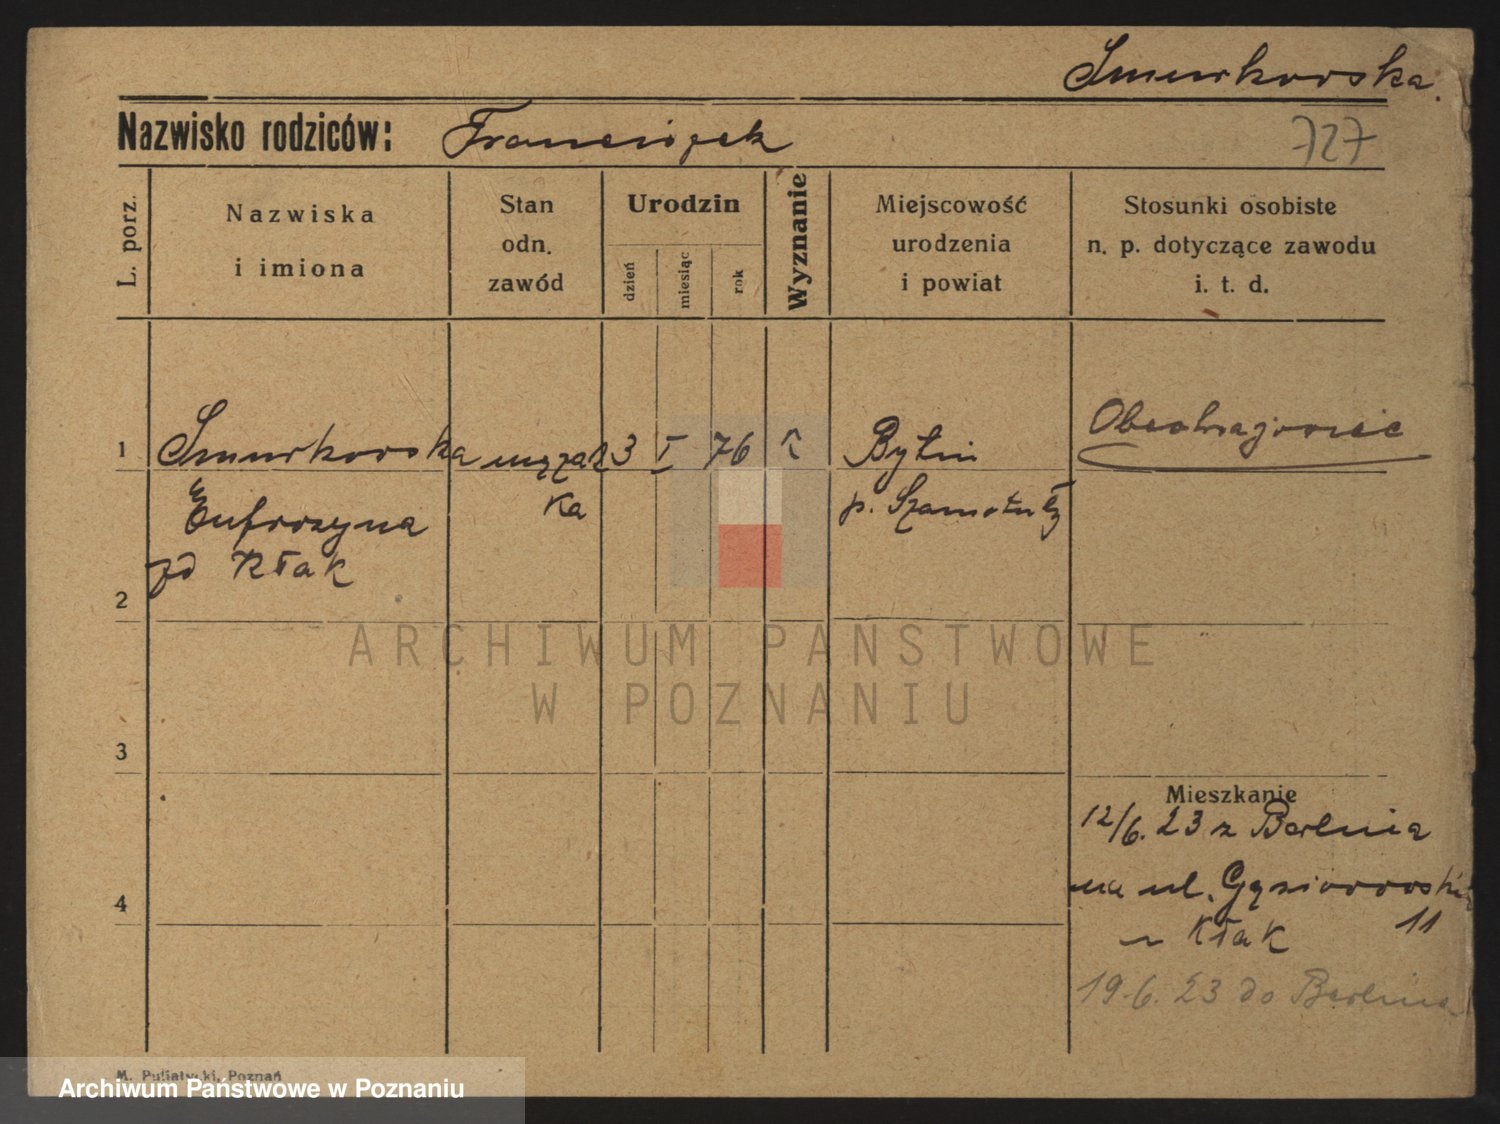 Smurkowska.
Nazwisko rodziców: Franciszek
727
L. porz.
Nazwiska
i imiona
Stan
odn.
zawód
Urodzin
dzień
miesiąc
rok
Wyznanie
Miejscowość
urodzenia
i powiat
Stosunki osobiste
n. p. dotyczące zawodu
i. t. d.
1
Smurkowska mężat 3 I 76 k Bytin
Eufrozyna ka p. Szamotuły
zd Kłak
2
3
4
Mieszkanie
12/6. 23 z Berlina
na ul. Gąsiorowskich
11
u Kłak
19.6.23 do Berlina
M. Puljatycki, Poznań
ARCHIWUM PAŃSTWOWE
W POZNANIU
Archiwum Państwowe w Poznaniu